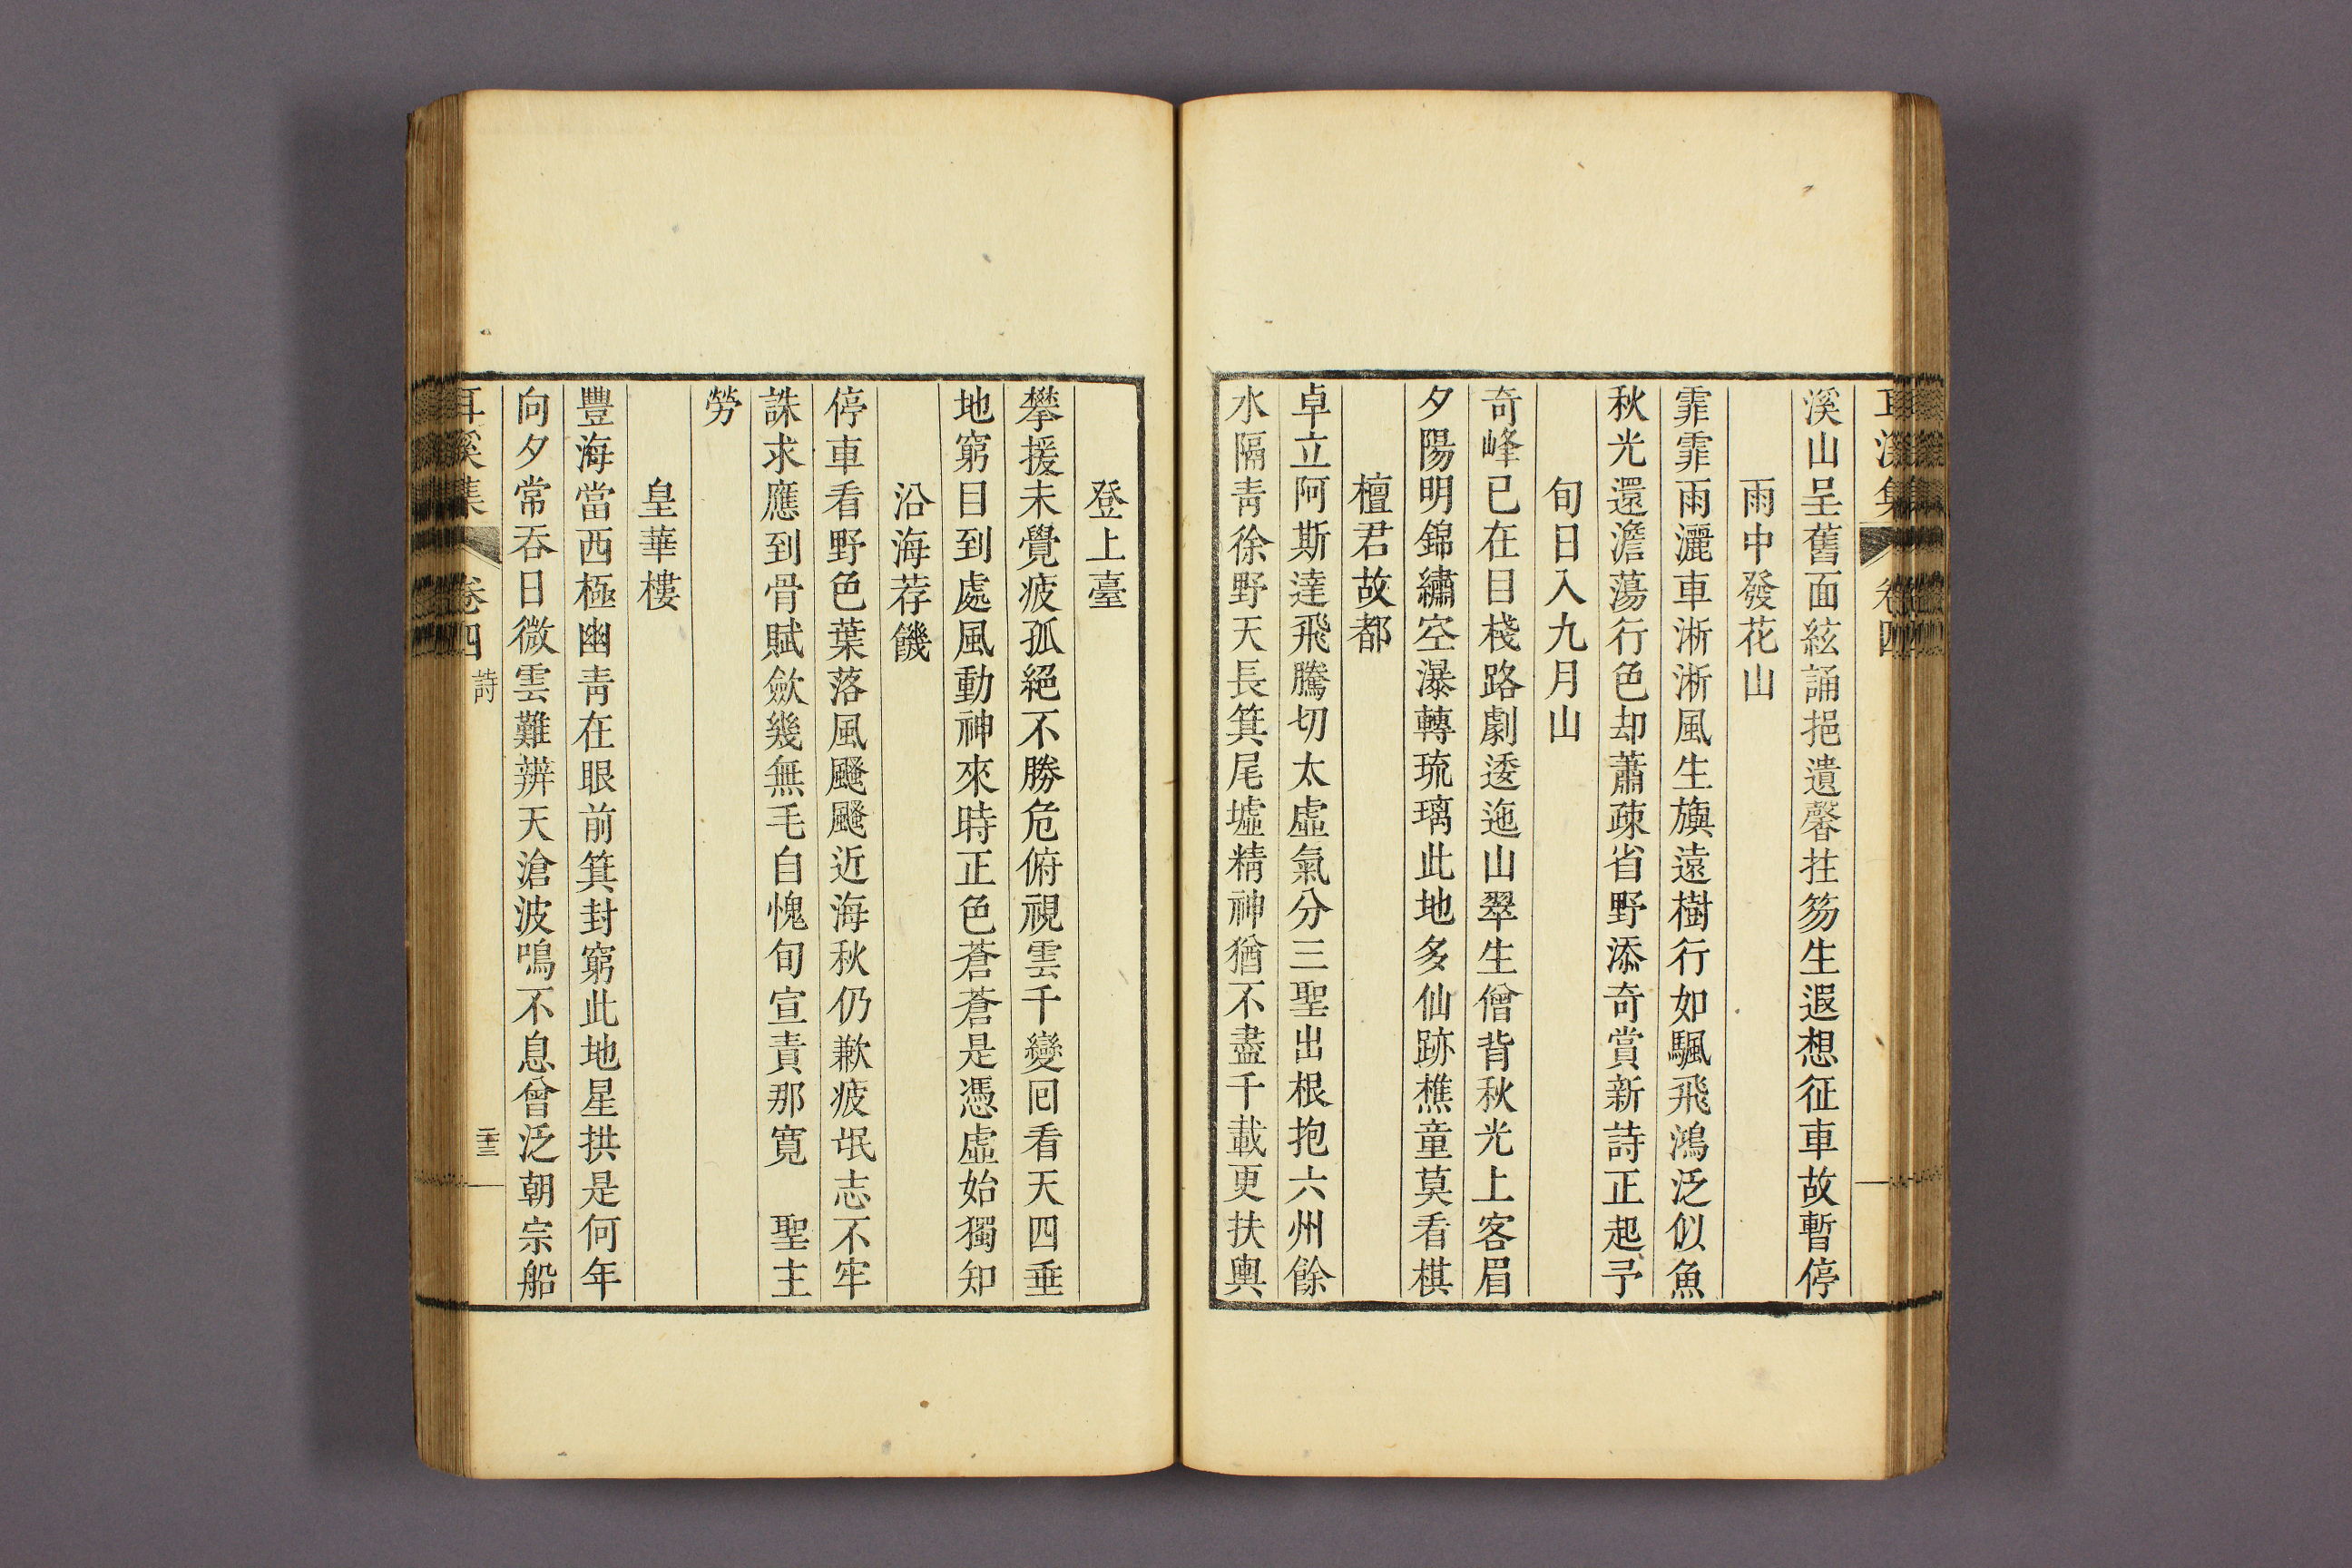 耳溪集 卷四
溪山呈舊面絃誦挹遺馨拄笏生遐想征車故暫停
雨中發花山
霏霏雨灑車淅淅風生旟遠樹行如颿飛鴻泛似魚
秋光還澹蕩行色却蕭疎省野添奇賞新詩正起予
旬日入九月山
奇峰已在目棧路劇逶迤山翠生僧背秋光上客眉
夕陽明錦繡空瀑轉琉璃此地多仙跡樵童莫看棋
檀君故都
卓立阿斯達飛騰切太虛氣分三聖出根抱六州餘
水隔靑徐野天長箕尾墟精神猶不盡千載更扶輿
登上臺
攀援未覺疲孤絕不勝危俯視雲千變回看天四垂
地窮目到處風動神來時正色蒼蒼是憑虛始獨知
沿海荐饑
停車看野色葉落風颼颼近海秋仍歉疲氓志不牢
誅求應到骨賦斂幾無毛自愧旬宣責那寬 聖主
勞
皇華樓
豐海當西極幽靑在眼前箕封窮此地星拱是何年
向夕常吞日微雲難辨天滄波鳴不息曾泛朝宗船
耳溪集 卷四 詩 二十三